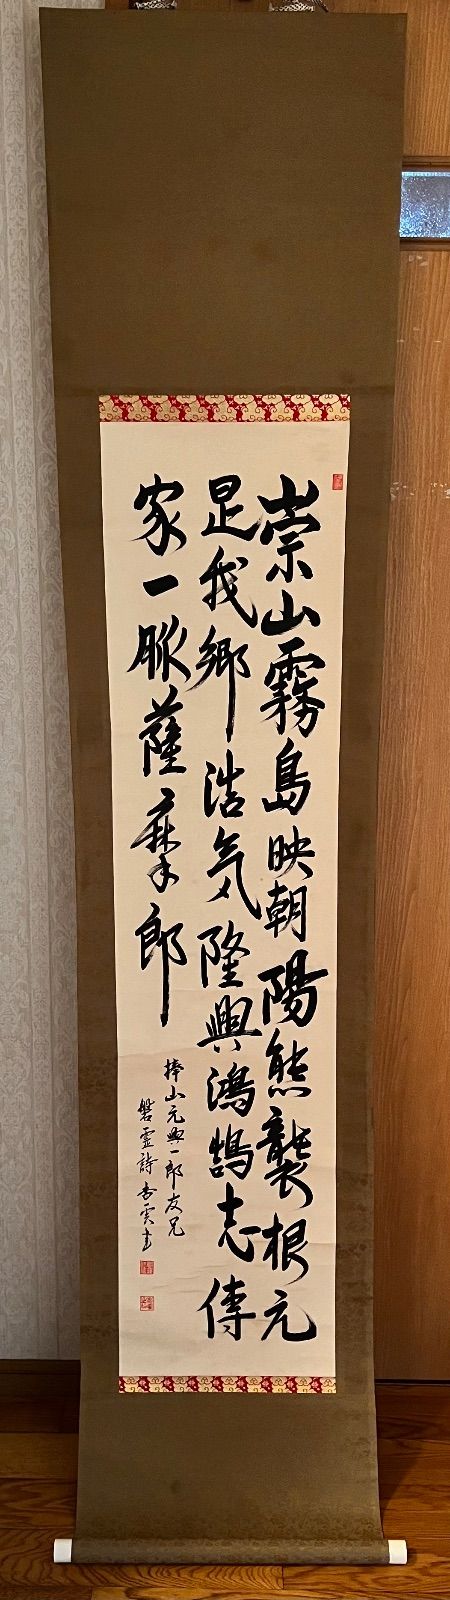 崇山霧島映朝陽熊襲根元
是我郷浩気隆興鴻鵠志傳
家一脈薩摩郎
捧山元興一郎友兄
磐霊詩 杏雲書